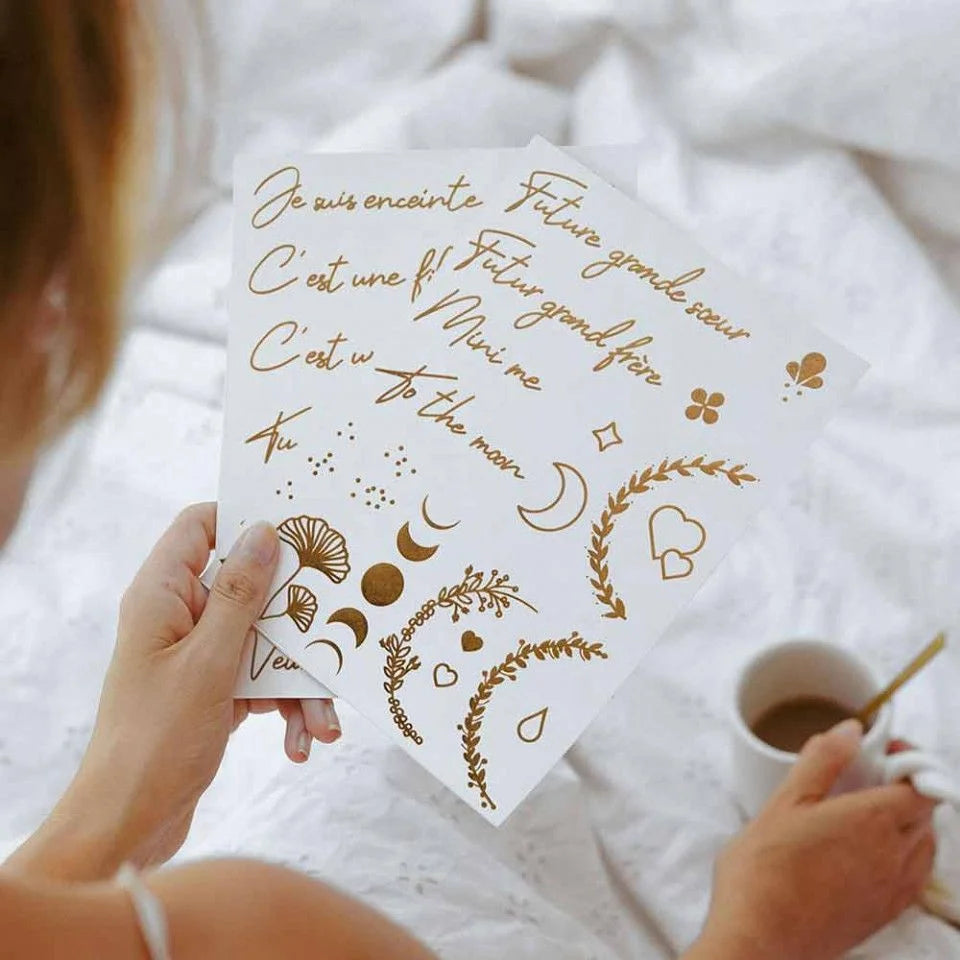 Je suis enceinte
C'est une fi
C'est u
Tu
Veu
Future grande sœur
Futur grand frère
Mini me
To the moon